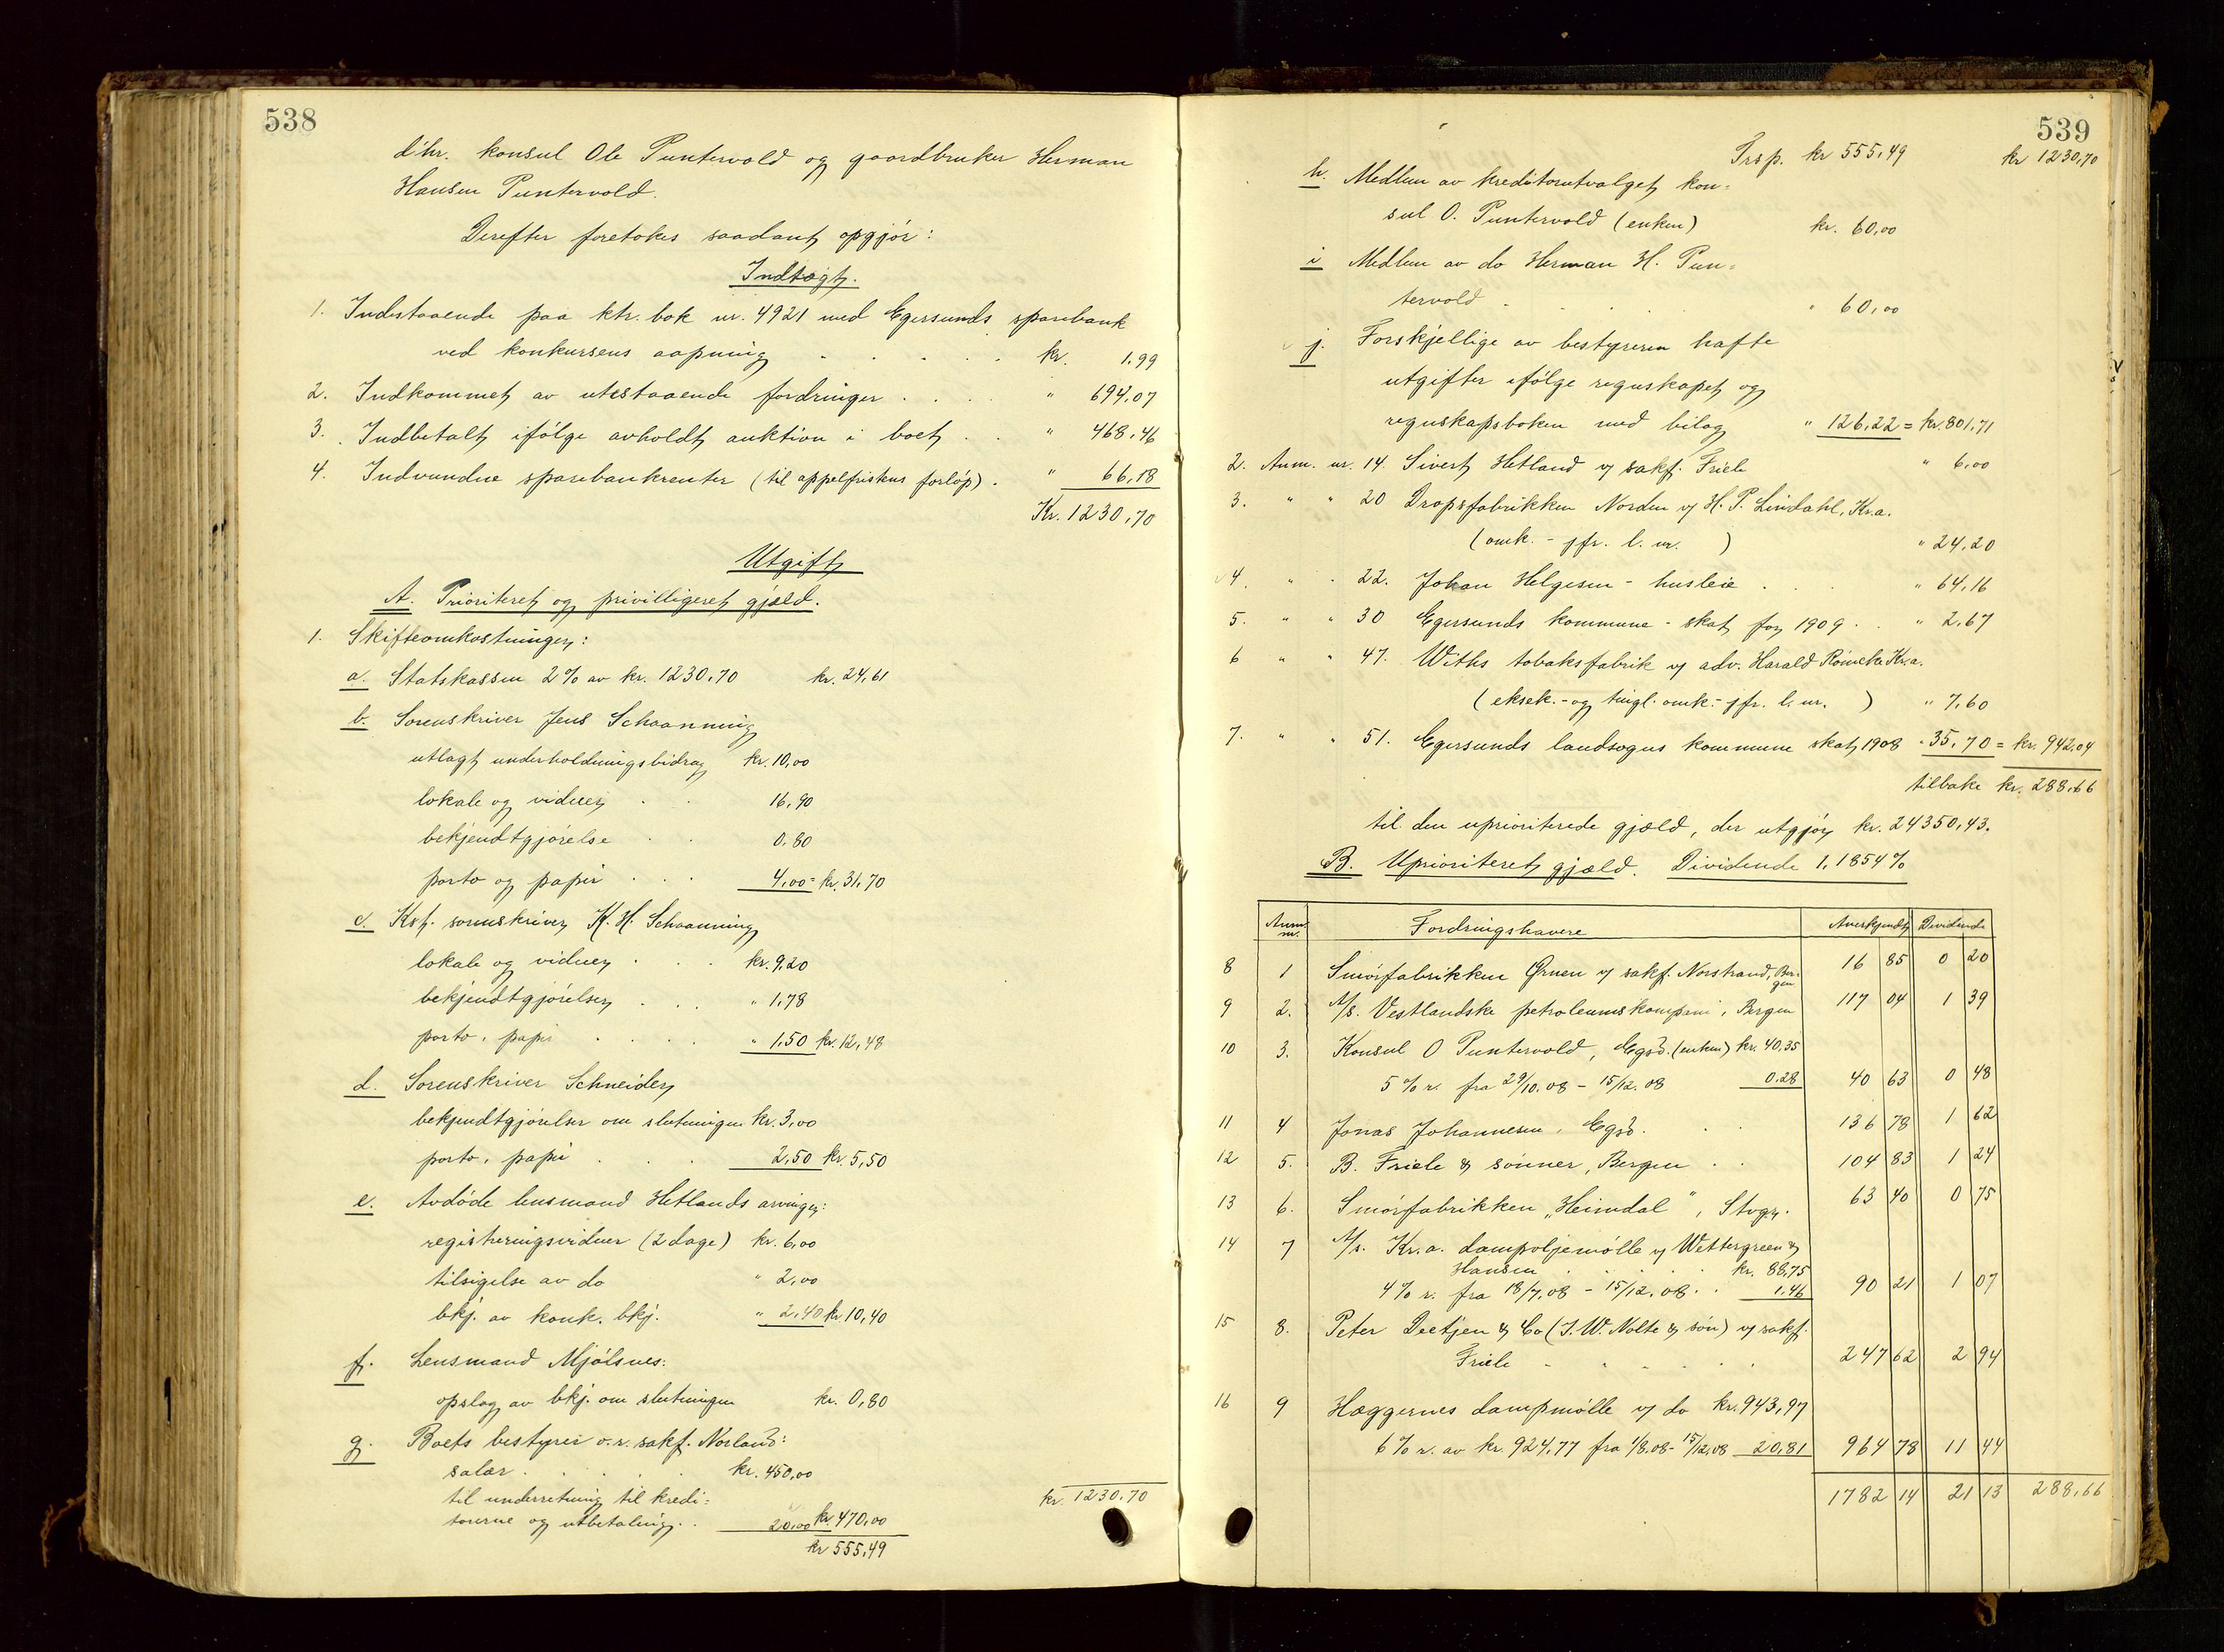 538
d'hr. konsul Ole Puntervold og gaardbruker Herman
Hansen Puntervold.
Derefter foretokes saadant opgjör:
Indtægt.
1. Indestaaende paa ktr. bok nr. 4921 med Egersunds sparebank
ved konkursens aapning . . . . . kr. 1.99
2. Indkommet av utestaaende fordringer . . . " 694,07
3. Indbetalt ifölge avholdt auktion i boet . . " 468,46
4. Indvundne sparebankrenter (til appelfristens forlöp) . " 66,18
Kr. 1230,70
Utgift
A. Prioritert og privilligeret gjæld.
1. Skifteomkostninger:
a. Statskassen 2% av kr. 1230,70 kr. 24,61
b. Sorenskriver Jens Schaanning
utlagt underholdningsbidrag kr. 10,00
lokale og vidner . . 16,90
bekjendtgjörelse . . 0,80
porto og papir . . . 4,00 = kr. 31,70
c. Kst. sorenskriver K. H. Schaanning
lokale og vidner . . . kr. 9,20
bekjendtgjörelser . . . " 1,78
porto, papir . . . . " 1,50 kr. 12,48
d. Sorenskriver Schneider
bekjendtgjörelser om slutningen kr. 3,00
porto, papir . . . 2,50 kr. 5,50
e. Avdöde lensmand Hetlands arvinger:
registreringsvidner (2 dage) kr. 6,00
tilsigelse av do " 2,00
bkj. av konk. bkj. " 2,40 kr. 10,40
f. Lensmand Mjölsnes:
opslag av bkj. om slutningen kr. 0,80
g. Boets bestyrer o.r. sakf. Norland:
salær . . . . . kr. 450,00
til underretning til kredi=
torerne og utbetaling . . 20,00 kr. 470,00
kr 555,49
kr. 1230,70
539
Trsp. kr 555,49 kr 1230,70
h. Medlem av kreditorutvalget kon=
sul O. Puntervold (enken) kr. 60,00
i Medlem av do Herman H. Pun=
tervold . . . " 60,00
j. Forskjellige av bestyreren hafte
utgifter ifölge regnskapet og
regnskapsboken med bilag " 126,22 = kr. 801,71
2. Anm. nr. 14. Sivert Hetland v/ sakf. Friele " 6,00
3. " " 20 Dropsfabrikken Norden v/ H. P. Lindahl, Kr.a.
(omk. - jfr. l. nr. ) " 24,20
4. " " 22. Johan Helgesen - husleie . . " 64,16
5. " " 30 Egersunds kommune - skat for 1909 . . " 2,67
6 " " 47. Withs tobaksfabrik v/ adv. Harald Römcke Kr.a.
(eksek. - og tingl. omk. - jfr. l. nr. ) " 7,60
7. " " 51. Egersunds landsogns kommune skat 1908 " 35,70 = kr. 942,04
tilbake kr. 288,66
til den uprioriterede gjæld, der utgjör kr. 24350,43.
B. Uprioritert gjæld. Dividende 1,1854%
Anm. nr. Fordringshavere Anerkjendt Dividende
8 1 Smörfabrikken Örnen v/ sakf. Norstrand, Ber=
gen 16 85 0 20
9 2. A/S. Vestlandske petroleumskompani, Bergen 117 04 1 39
10 3. Konsul O Puntervold, Egsd. (enken) kr. 40,35
5 % r. fra 29/10. 08 - 15/12. 08 0.28 40 63 0 48
11 4 Jonas Johannesen, Egsd. . . 136 78 1 62
12 5. B. Friele & sönner, Bergen . . 104 83 1 24
13 6. Smörfabrikken "Heimdal", Stvgr. 63 40 0 75
14 7 A/s. Kr.a. dampoljemölle v/ Wettergreen &
Hansen . . . . . kr. 88,75
4% r. fra 18/7,08 - 15/12,08 . . 1,46 90 21 1 07
15 8. Peter Deetjen & Co (I. W. Nolte & sön) v/ sakf.
Friele - . . . . 247 62 2 94
16 9 Hæggernes dampmölle v/ do kr. 943,97
6% r. av kr. 924,77 fra 1/8.08 - 15/12.08 20,81 964 78 11 44
1782 14 21 13 288,66